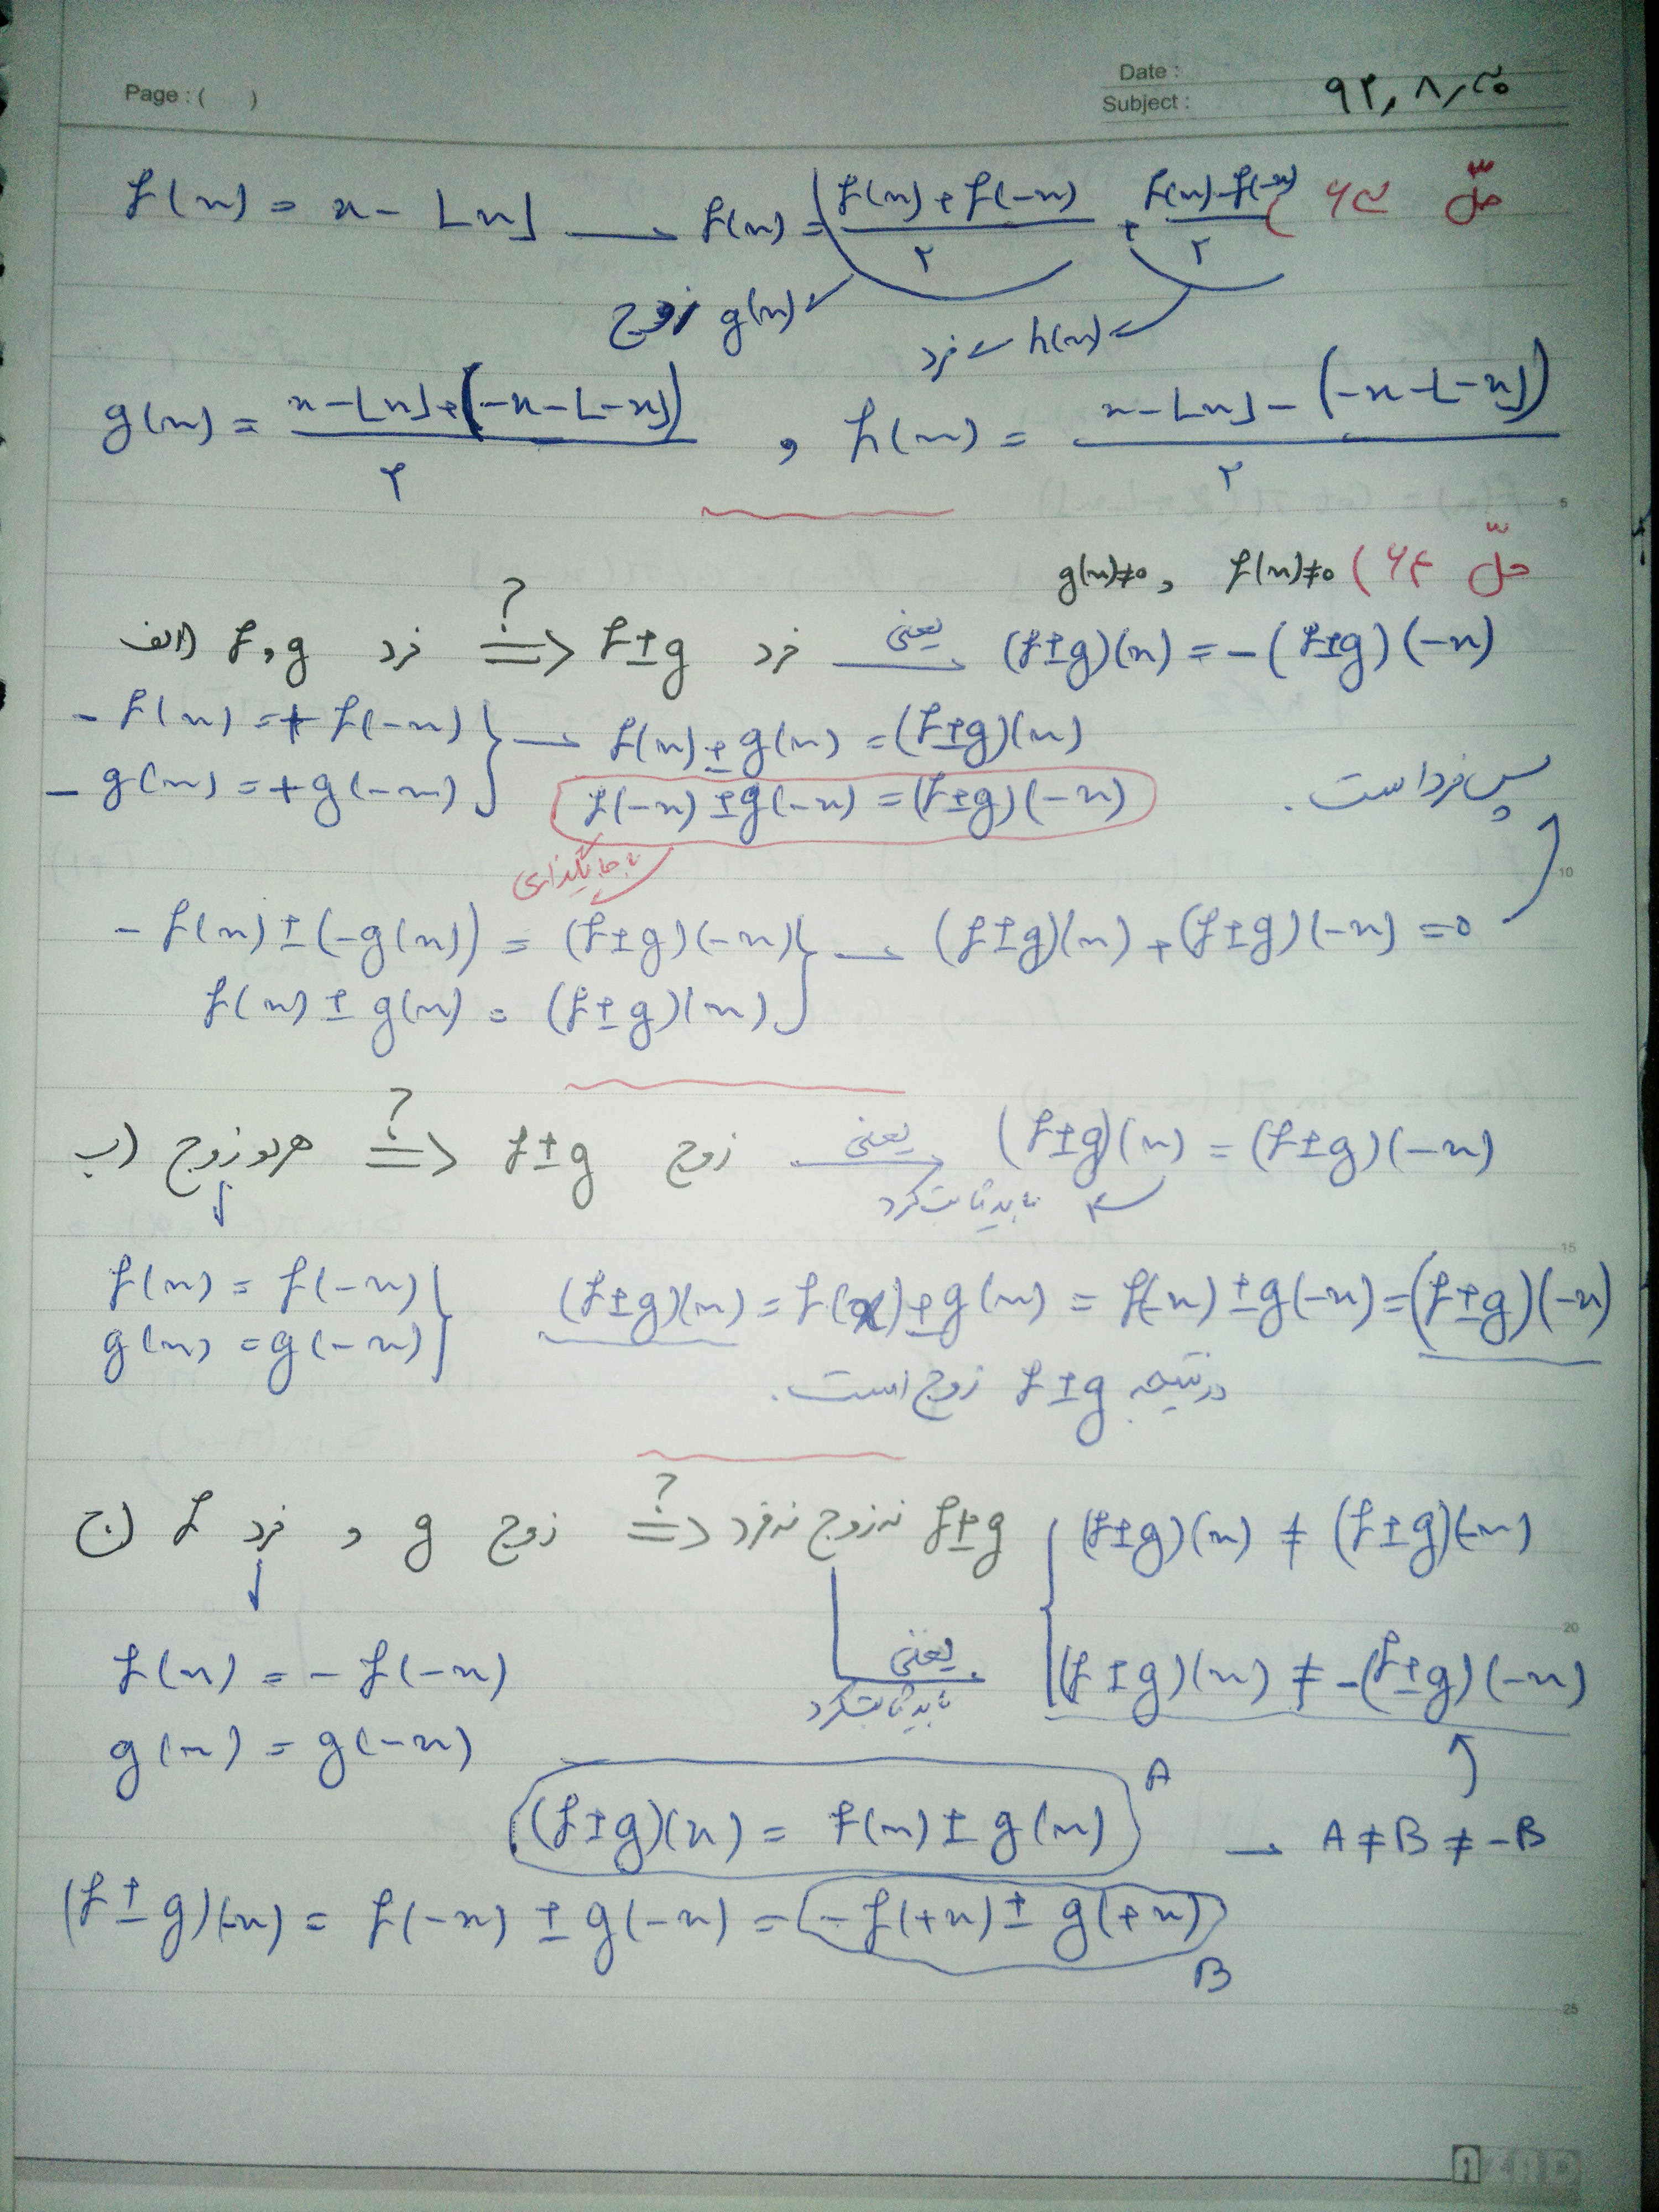 Page : ( )
Date :
Subject :
حلّ
f(x) = x - ⌊x⌋ → f(x) = (f(x) + f(-x))/۲ + (f(x) - f(-x))/۲
زوج g(x) ↙
فرد ← h(x) ↙
g(x) = (x - ⌊x⌋ + (-x - ⌊-x⌋))/۲ , h(x) = (x - ⌊x⌋ - (-x - ⌊-x⌋))/۲
حلّ ۶۴) f(x)≠0 , g(x)≠0
الف) f,g فرد ?=> f±g فرد یعنی→ (f±g)(x) = -(f±g)(-x)
- f(x) = + f(-x)
- g(x) = + g(-x) } → f(x) ± g(x) = (f±g)(x)
f(-x) ± g(-x) = (f±g)(-x)
پس فرد است.
با جایگذاری
- f(x) ± (-g(x)) = (f±g)(-x)
f(x) ± g(x) = (f±g)(x) } → (f±g)(x) + (f±g)(-x) = 0
ب) هردو زوج ?=> f±g زوج یعنی→ (f±g)(x) = (f±g)(-x)
باید ثابت کرد
f(x) = f(-x)
g(x) = g(-x) } (f±g)(x) = f(x) ± g(x) = f(-x) ± g(-x) = (f±g)(-x)
در نتیجه f±g زوج است.
ج) f فرد و g زوج ?=> نه زوج نه فرد f±g { (f±g)(x) ≠ (f±g)(-x)
f(x) = - f(-x)
یعنی
باید ثابت کرد
(f±g)(x) ≠ -(f±g)(-x)
g(x) = g(-x)
(f±g)(x) = f(x) ± g(x) A → A ≠ B ≠ -B
(f±g)(-x) = f(-x) ± g(-x) = - f(+x) ± g(+x) B
5
10
15
20
25
AZAD